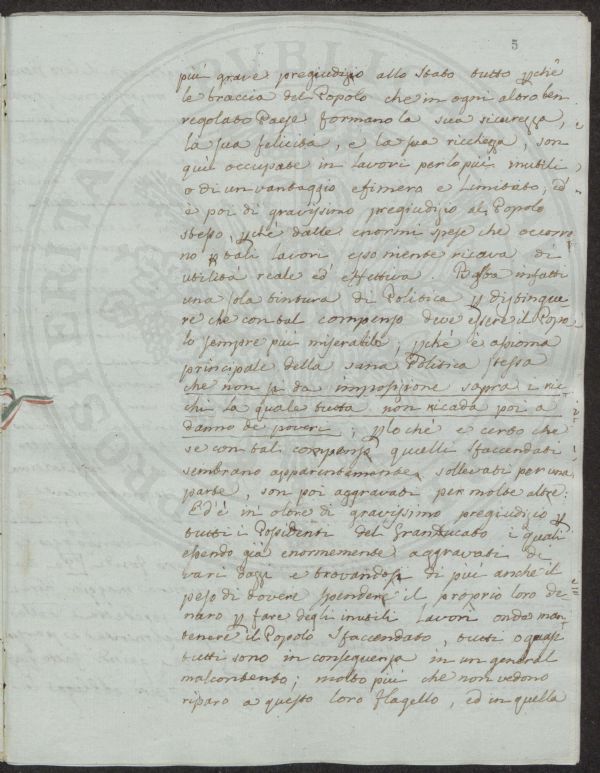 5
più grave pregiudizio allo Stato tutto pchè
le braccia del Popolo che in ogni altro ben
regolato Paese formano la sua sicurezza,
la sua felicità, e la sua ricchezza, son
quì occupate in lavori per lo più inutili
o di un vantaggio efimero e limitato, ed
è poi di gravissimo pregiudizio al Popolo
stesso, pchè dalle enormi spese che occorro
no p tali lavori esso niente ricava di
utilità reale ed effettiva. Basta infatti
una sola tintura di Politica p distingue
re che con tal compenso deve essere il Popo
lo sempre più miserabile; pchè è assioma
principale della sana Politica stessa
che non si dà imposizione sopra i ric
chi la quale tutta non ricada poi a
danno de poveri; p lo chè è certo che
se con tali compensi quelli sfaccendati
sembrano apparentemente sollevati per una
parte, son poi aggravati per molte altre:
Ed è in oltre di gravissimo pregiudizio p
tutti i Possidenti del Granducato i quali
essendo già enormemente aggravati di
vari dazzi e trovandosi di più anche il
peso di dovere spendere il proprio loro de
naro p fare degli inutili lavori onde man
tenere il Popolo sfaccendato, tutti o quasi
tutti sono in conseguenza in un general
malcontento; molto più che non vedono
riparo a questo loro flagello, ed in quella
PROSPERITATI PVBLIC